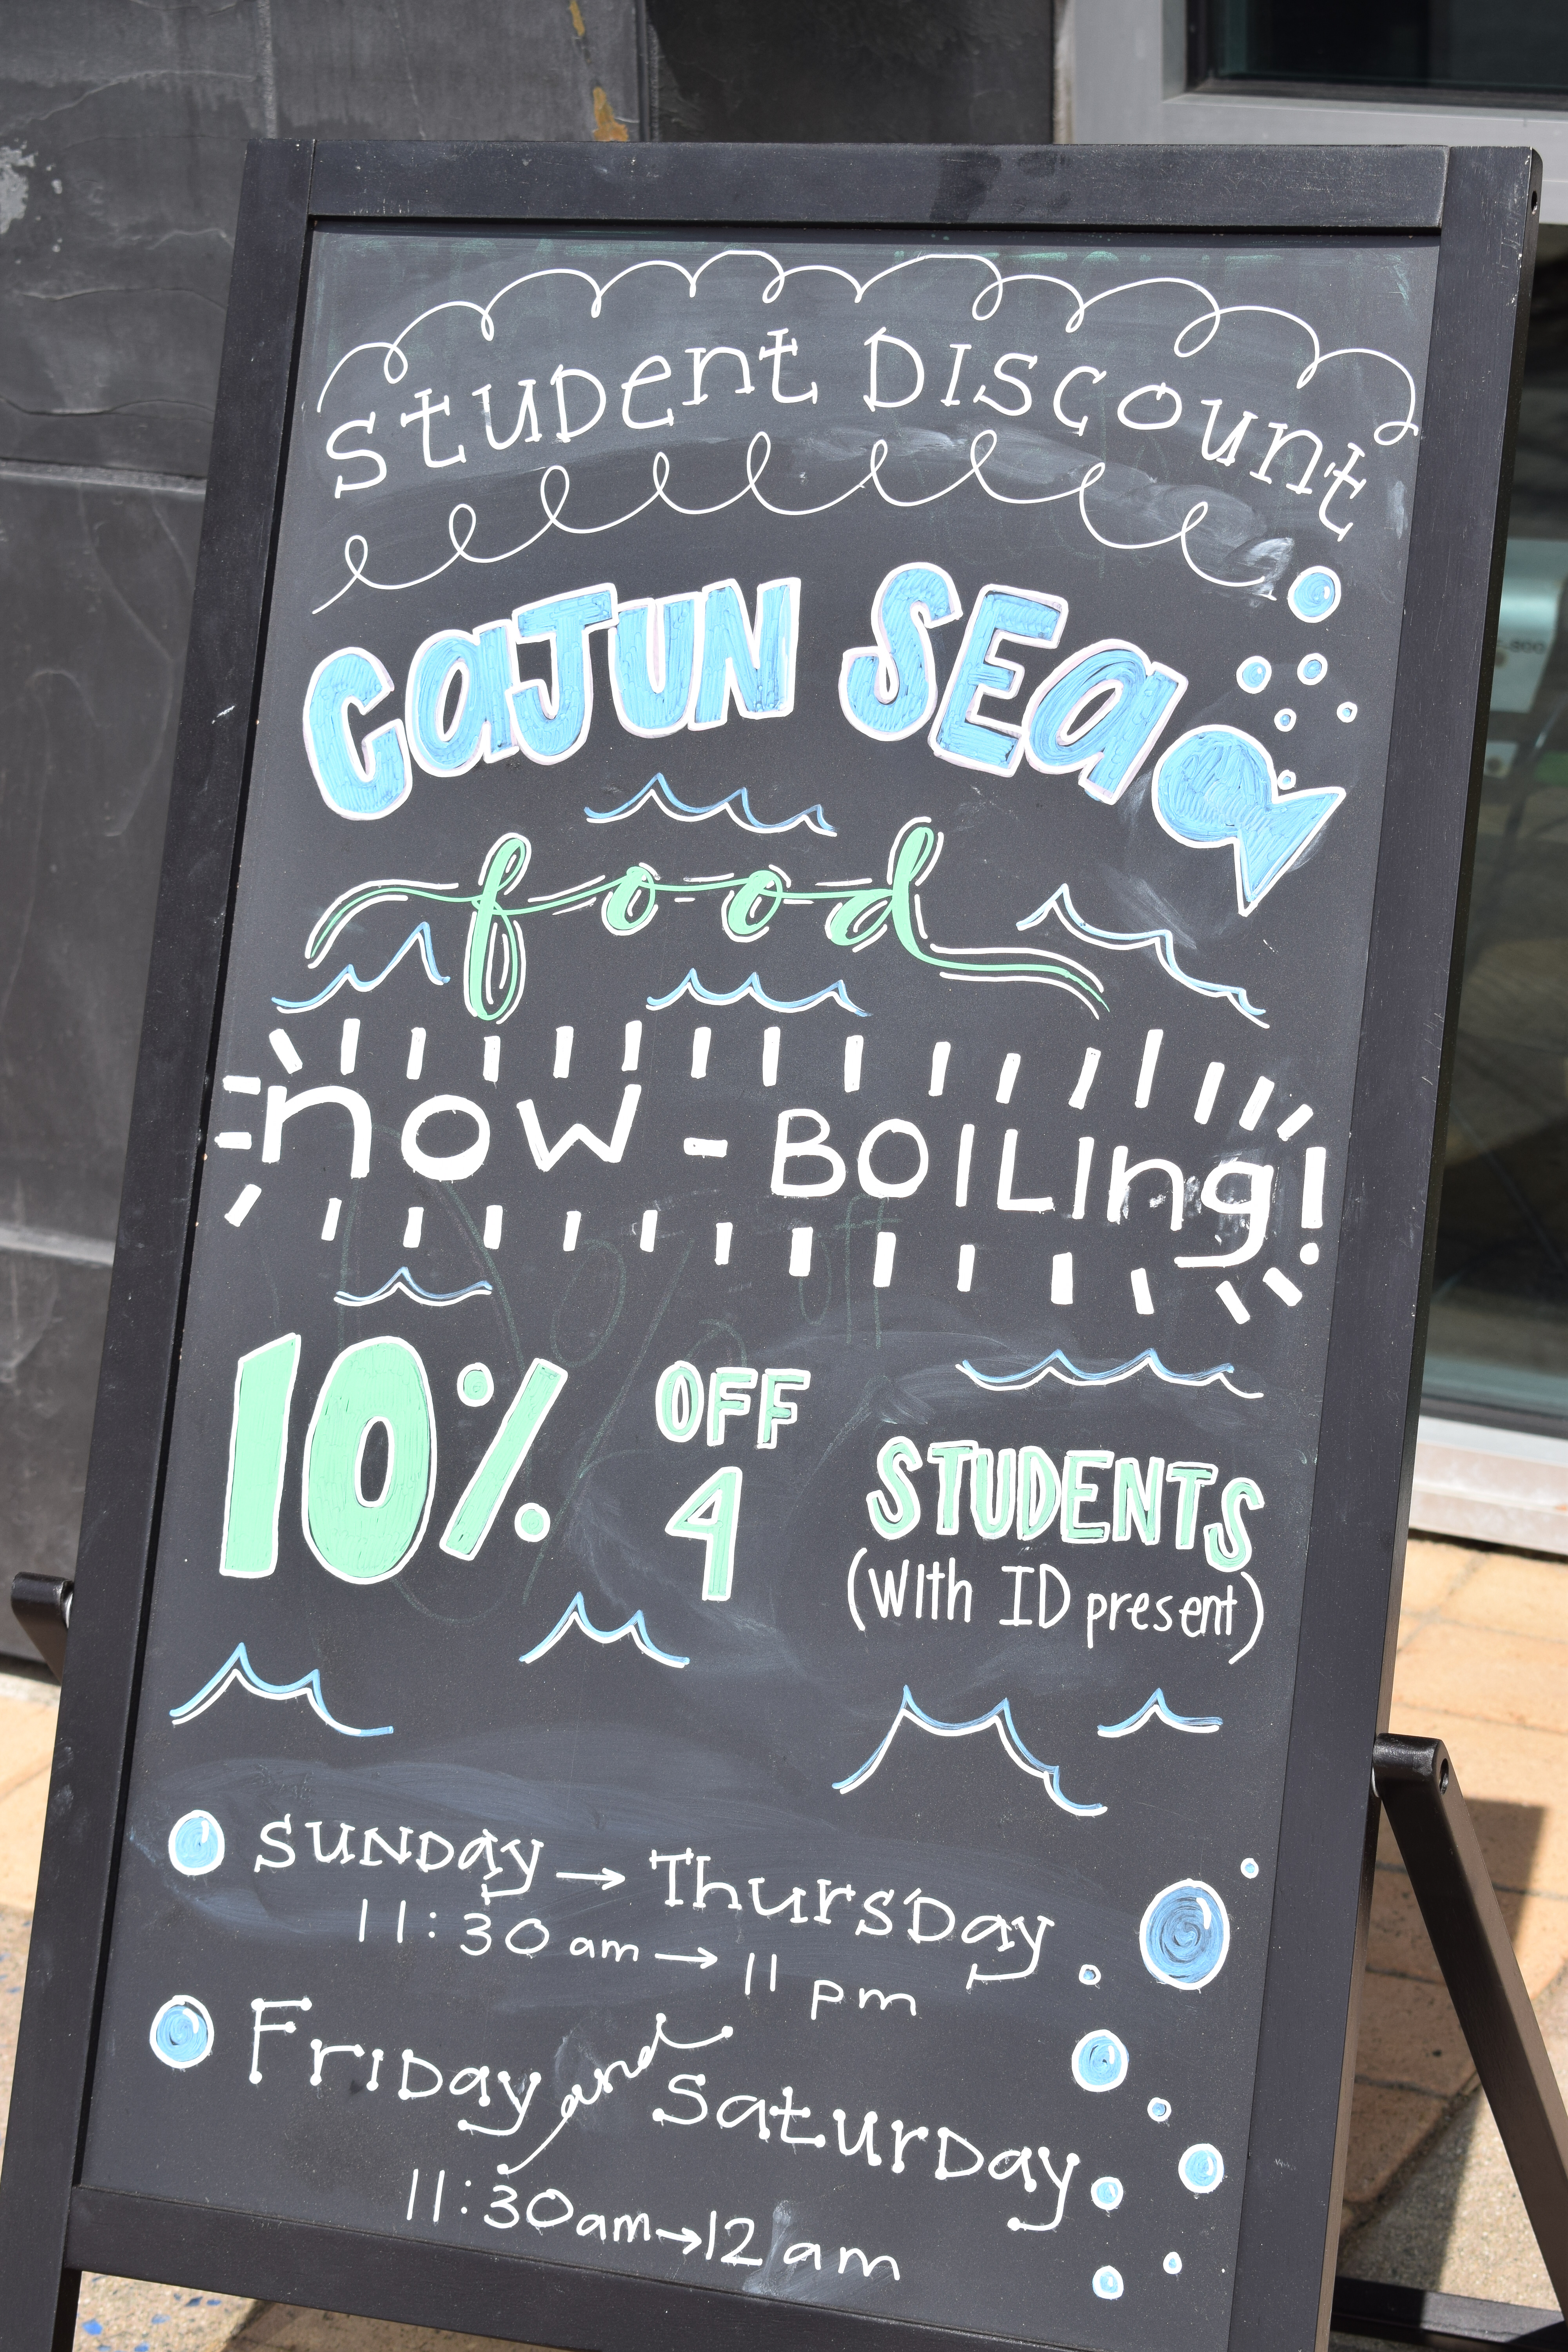 Student Discount
CAJUN SEA
food
now - BOILIng!
10% OFF
4 STUDENTS
(with ID present)
SUNDay → ThursDay
11:30 am → 11 pm
FriDay and SaturDay
11:30am→12 am